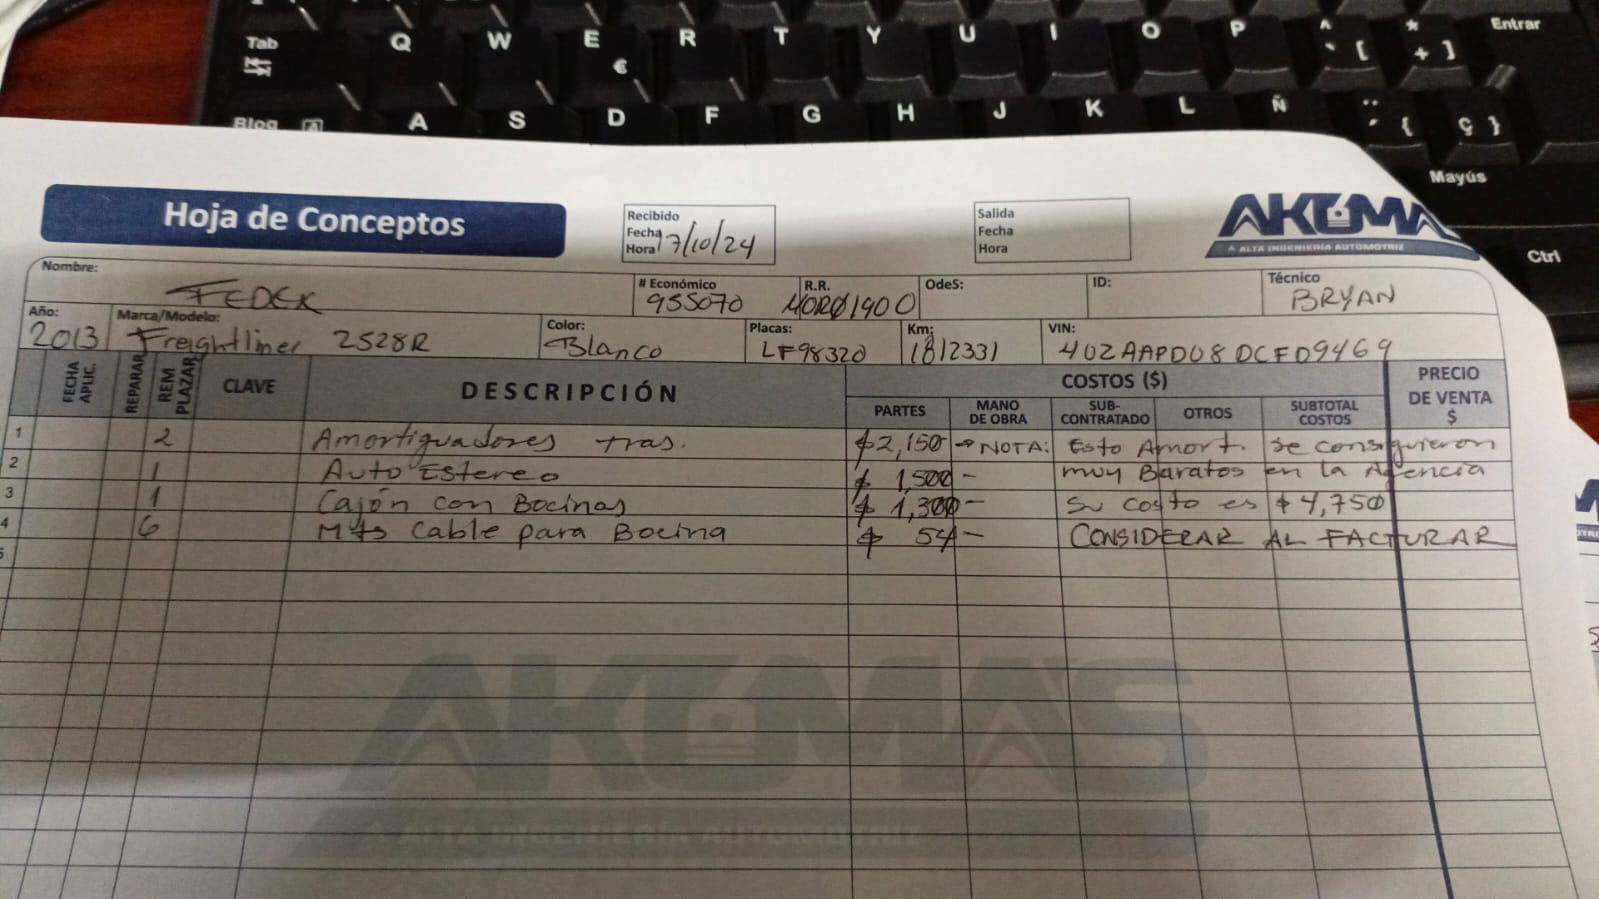 Tab Q W E R T Y U I O P ^ [ * + ] Entrar
€
Bloq A S D F G H J K L Ñ ¨ ´ { ç }
Mayús
Ctrl
Hoja de Conceptos
Recibido
Fecha
Hora 17/10/24
Salida
Fecha
Hora
AKOMAS
A ALTA INGENIERÍA AUTOMOTRIZ
Nombre: FEDEX # Económico 955070 R.R. MORØ1900 OdeS: ID: Técnico BRYAN
Año: 2013 Marca/Modelo: Freightliner 2528R Color: Blanco Placas: LF98320 Km: 1812331 VIN: 4UZAAPDU8DCFD9469
FECHA APLIC. REPARAR REM PLAZAR CLAVE DESCRIPCIÓN COSTOS ($) PRECIO DE VENTA $
PARTES MANO DE OBRA SUB-CONTRATADO OTROS SUBTOTAL COSTOS
1 2 Amortiguadores tras. $2,150 → NOTA: Esto Amort. se consiguieron
2 1 Auto Estereo $ 1,500 - muy Baratos en la Agencia
3 1 Cajón con Bocinas $ 1,300 - su costo es $4,750
4 6 Mts Cable para Bocina $ 54 - CONSIDERAR AL FACTURAR
5
AKOMAS
A ALTA INGENIERÍA AUTOMOTRIZ